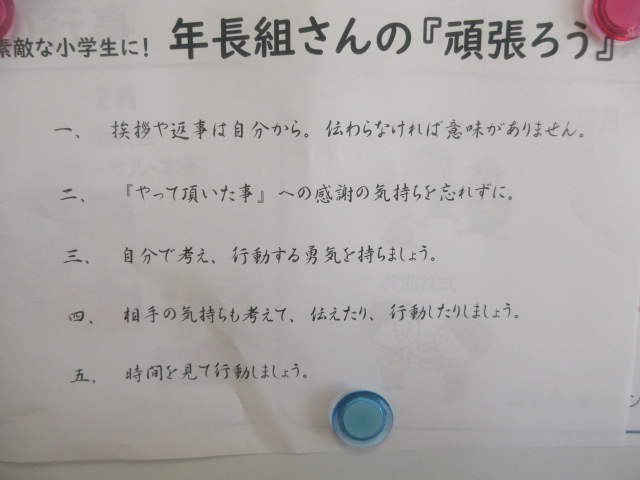 素敵な小学生に! 年長組さんの『頑張ろう』
一、 挨拶や返事は自分から。伝わらなければ意味がありません。
二、 『やって頂いた事』への感謝の気持ちを忘れずに。
三、 自分で考え、行動する勇気を持ちましょう。
四、 相手の気持ちも考えて、伝えたり、行動したりしましょう。
五、 時間を見て行動しましょう。
お別れ式